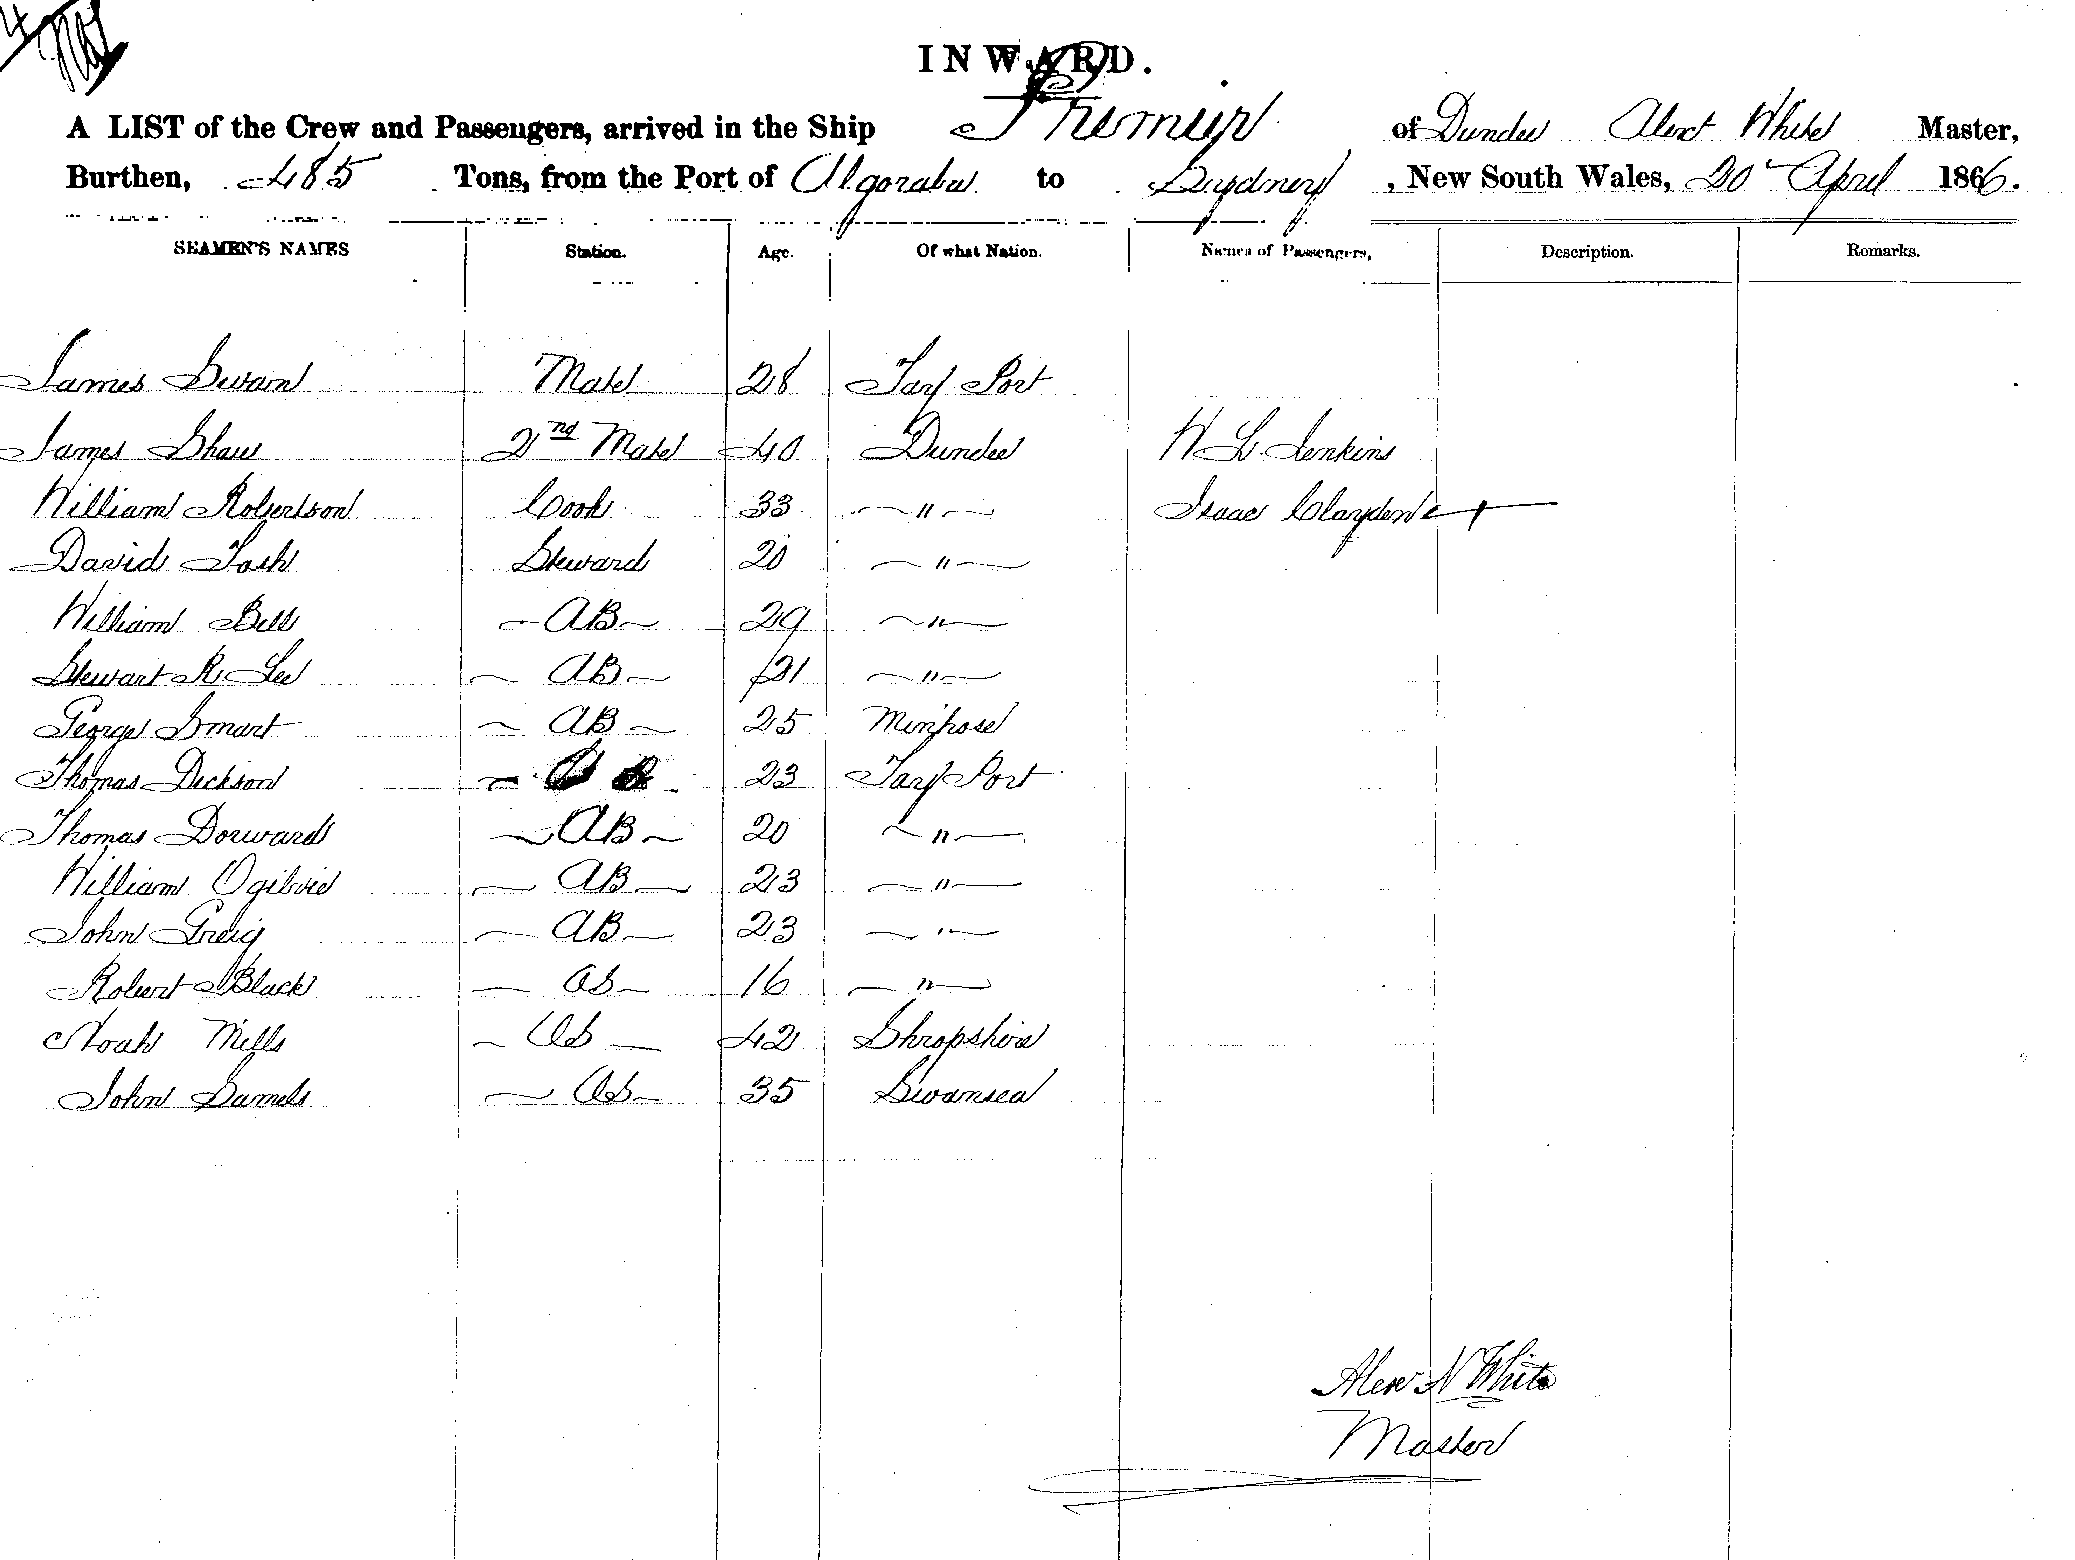 INWARD.
A LIST of the Crew and Passengers, arrived in the Ship Premier of Dundee Alexr White Master,
Burthen, 485 Tons, from the Port of Algoabay to Sydney, New South Wales, 20 April 1866.
SEAMEN'S NAMES Station. Age. Of what Nation. Names of Passengers, Description. Remarks.
James Swan Mate 28 Tay Port
James Shaw 2nd Mate 40 Dundee W L Jenkins
William Robertson Cook 33 " Isaac Clayden
David Tosh Steward 20 "
William Bell AB 29 "
Stewart R Lee AB 21 "
George Smart AB 25
Thomas Dickson 23 Tay Port
Thomas Dorward AB 20 "
William Ogilvie AB 23 "
John Greig AB 23 "
Robert Black OS 16 "
Noah Mills OS 42 Shropshire
John Samels OS 35 Swansea
Alexr N White
Master